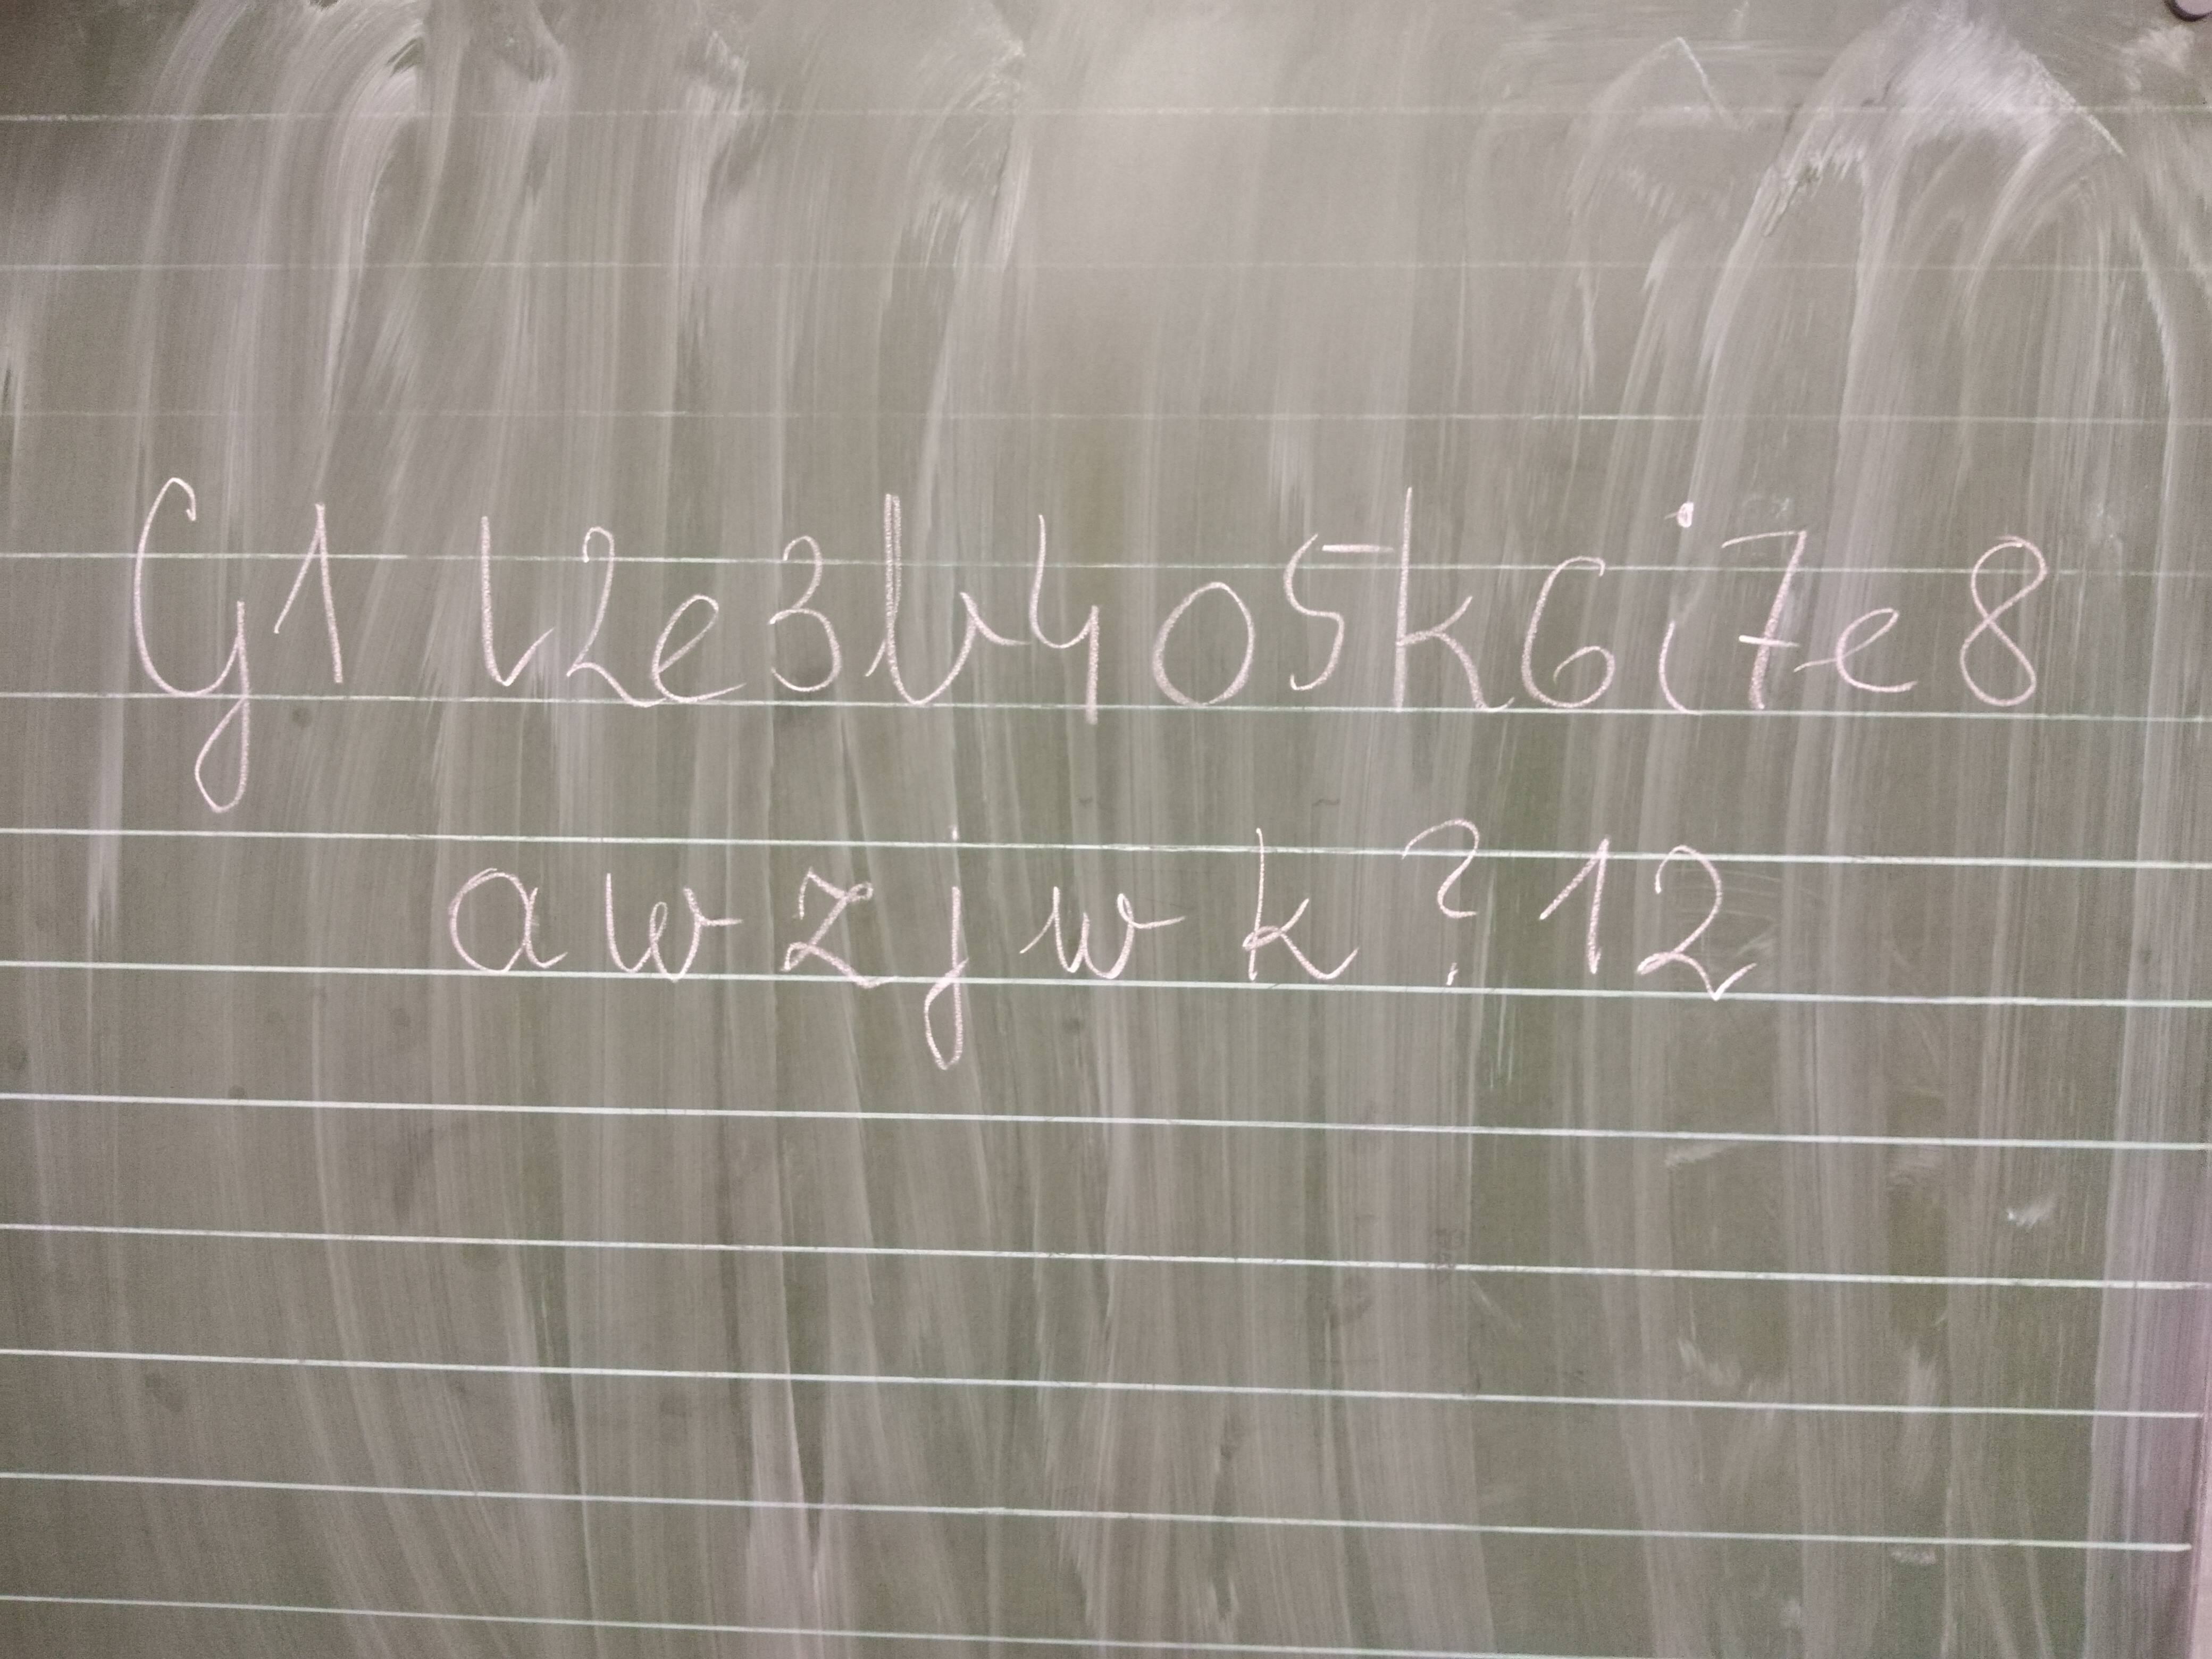 G1 l2e3b4o5k6i7e8
a w z j w k ? 12